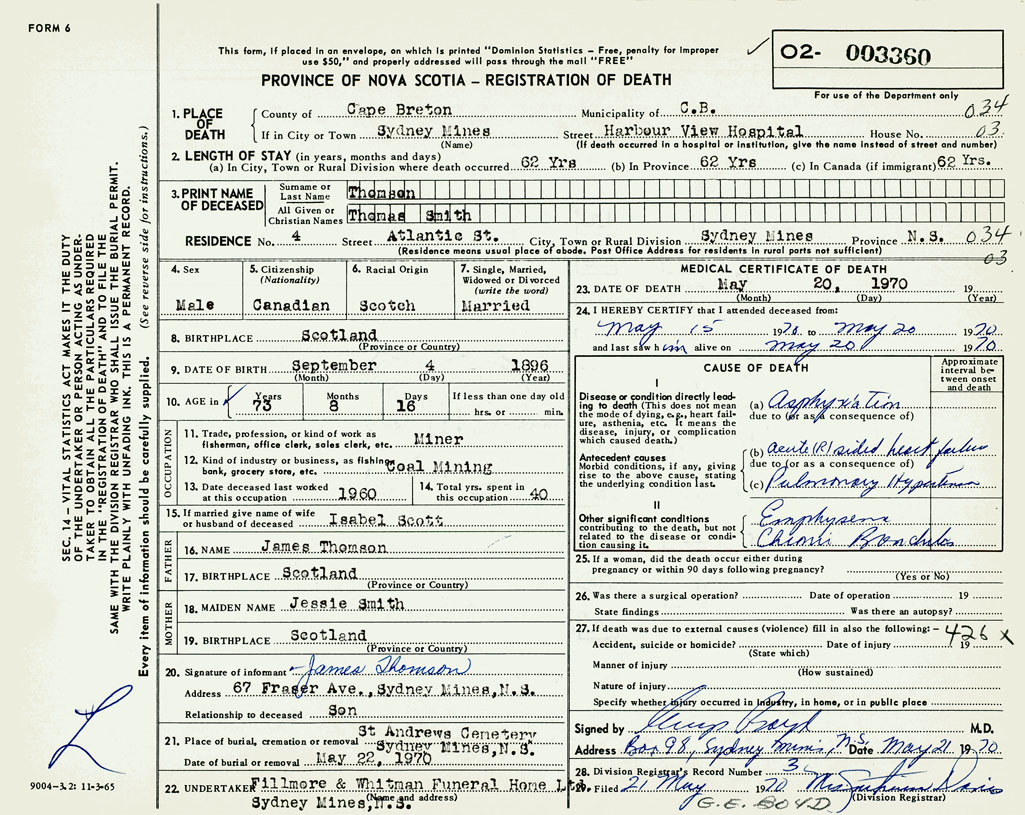 FORM 6
This form, if placed in an envelope, on which is printed "Dominion Statistics – Free, penalty for improper
use $50," and properly addressed will pass through the mail "FREE"
✓ O2- 003360
PROVINCE OF NOVA SCOTIA – REGISTRATION OF DEATH
For use of the Department only
1. PLACE OF DEATH
County of Cape Breton Municipality of C.B. 034
If in City or Town Sydney Mines Street Harbour View Hospital House No. 03
(Name) (If death occurred in a hospital or institution, give the name instead of street and number)
2. LENGTH OF STAY (in years, months and days)
(a) In City, Town or Rural Division where death occurred 62 Yrs (b) In Province 62 Yrs (c) In Canada (if immigrant) 62 Yrs.
3. PRINT NAME OF DECEASED
Surname or Last Name Thomson
All Given or Christian Names Thomas Smith
RESIDENCE No. 4 Street Atlantic St. City, Town or Rural Division Sydney Mines Province N.S. 034
(Residence means usual place of abode. Post Office Address for residents in rural parts not sufficient) 03
4. Sex
Male
5. Citizenship
(Nationality)
Canadian
6. Racial Origin
Scotch
7. Single, Married,
Widowed or Divorced
(write the word)
Married
8. BIRTHPLACE Scotland
(Province or Country)
9. DATE OF BIRTH September 4 1896
(Month) (Day) (Year)
10. AGE in ✓ Years Months Days If less than one day old
73 8 16 hrs. or min.
OCCUPATION
11. Trade, profession, or kind of work as
fisherman, office clerk, sales clerk, etc. Miner
12. Kind of industry or business, as fishing,
bank, grocery store, etc. Coal Mining
13. Date deceased last worked
at this occupation 1960
14. Total yrs. spent in
this occupation 40
15. If married give name of wife
or husband of deceased Isabel Scott
FATHER
16. NAME James Thomson
17. BIRTHPLACE Scotland
(Province or Country)
MOTHER
18. MAIDEN NAME Jessie Smith
19. BIRTHPLACE Scotland
(Province or Country)
20. Signature of informant James Thomson
Address 67 Fraser Ave., Sydney Mines, N.S.
Relationship to deceased Son
21. Place of burial, cremation or removal St Andrews Cemetery
Sydney Mines, N.S.
Date of burial or removal May 22, 1970
22. UNDERTAKER Fillmore & Whitman Funeral Home Ltd.
(Name and address)
Sydney Mines, N.S.
MEDICAL CERTIFICATE OF DEATH
23. DATE OF DEATH May 20, 1970 19
(Month) (Day) (Year)
24. I HEREBY CERTIFY that I attended deceased from:
May 15 1970 to May 20 1970
and last saw him alive on May 20 1970
CAUSE OF DEATH
Approximate
interval be-
tween onset
and death
I
Disease or condition directly lead-
ing to death (This does not mean
the mode of dying, e.g., heart fail-
ure, asthenia, etc. It means the
disease, injury, or complication
which caused death.)
(a) Asphyxiation
due to (or as a consequence of)
Antecedent causes
Morbid conditions, if any, giving
rise to the above cause, stating
the underlying condition last.
(b) acute (R) sided heart failure
due to (or as a consequence of)
(c) Pulmonary Hypertension
II
Other significant conditions
contributing to the death, but not
related to the disease or condi-
tion causing it.
Emphysema
Chronic Bronchitis
25. If a woman, did the death occur either during
pregnancy or within 90 days following pregnancy?
(Yes or No)
26. Was there a surgical operation? Date of operation 19
State findings Was there an autopsy?
27. If death was due to external causes (violence) fill in also the following: – 426 x
Accident, suicide or homicide? Date of injury 19
(State which)
Manner of injury
(How sustained)
Nature of injury
Specify whether injury occurred in industry, in home, or in public place
Signed by Boyd M.D.
Address Box 98, Sydney Mines, N.S. Date May 21 1970
28. Division Registrar's Record Number 3
29. Filed 21 May 1970 Mrs Davis
G.E. BOYD (Division Registrar)
SEC. 14 – VITAL STATISTICS ACT MAKES IT THE DUTY
OF THE UNDERTAKER OR PERSON ACTING AS UNDER-
TAKER TO OBTAIN ALL THE PARTICULARS REQUIRED
IN THE "REGISTRATION OF DEATH" AND TO FILE THE
SAME WITH THE DIVISION REGISTRAR WHO SHALL ISSUE THE BURIAL PERMIT.
WRITE PLAINLY WITH UNFADING INK. THIS IS A PERMANENT RECORD.
Every item of information should be carefully supplied. (See reverse side for instructions.)
L
9004-3.2: 11-3-65